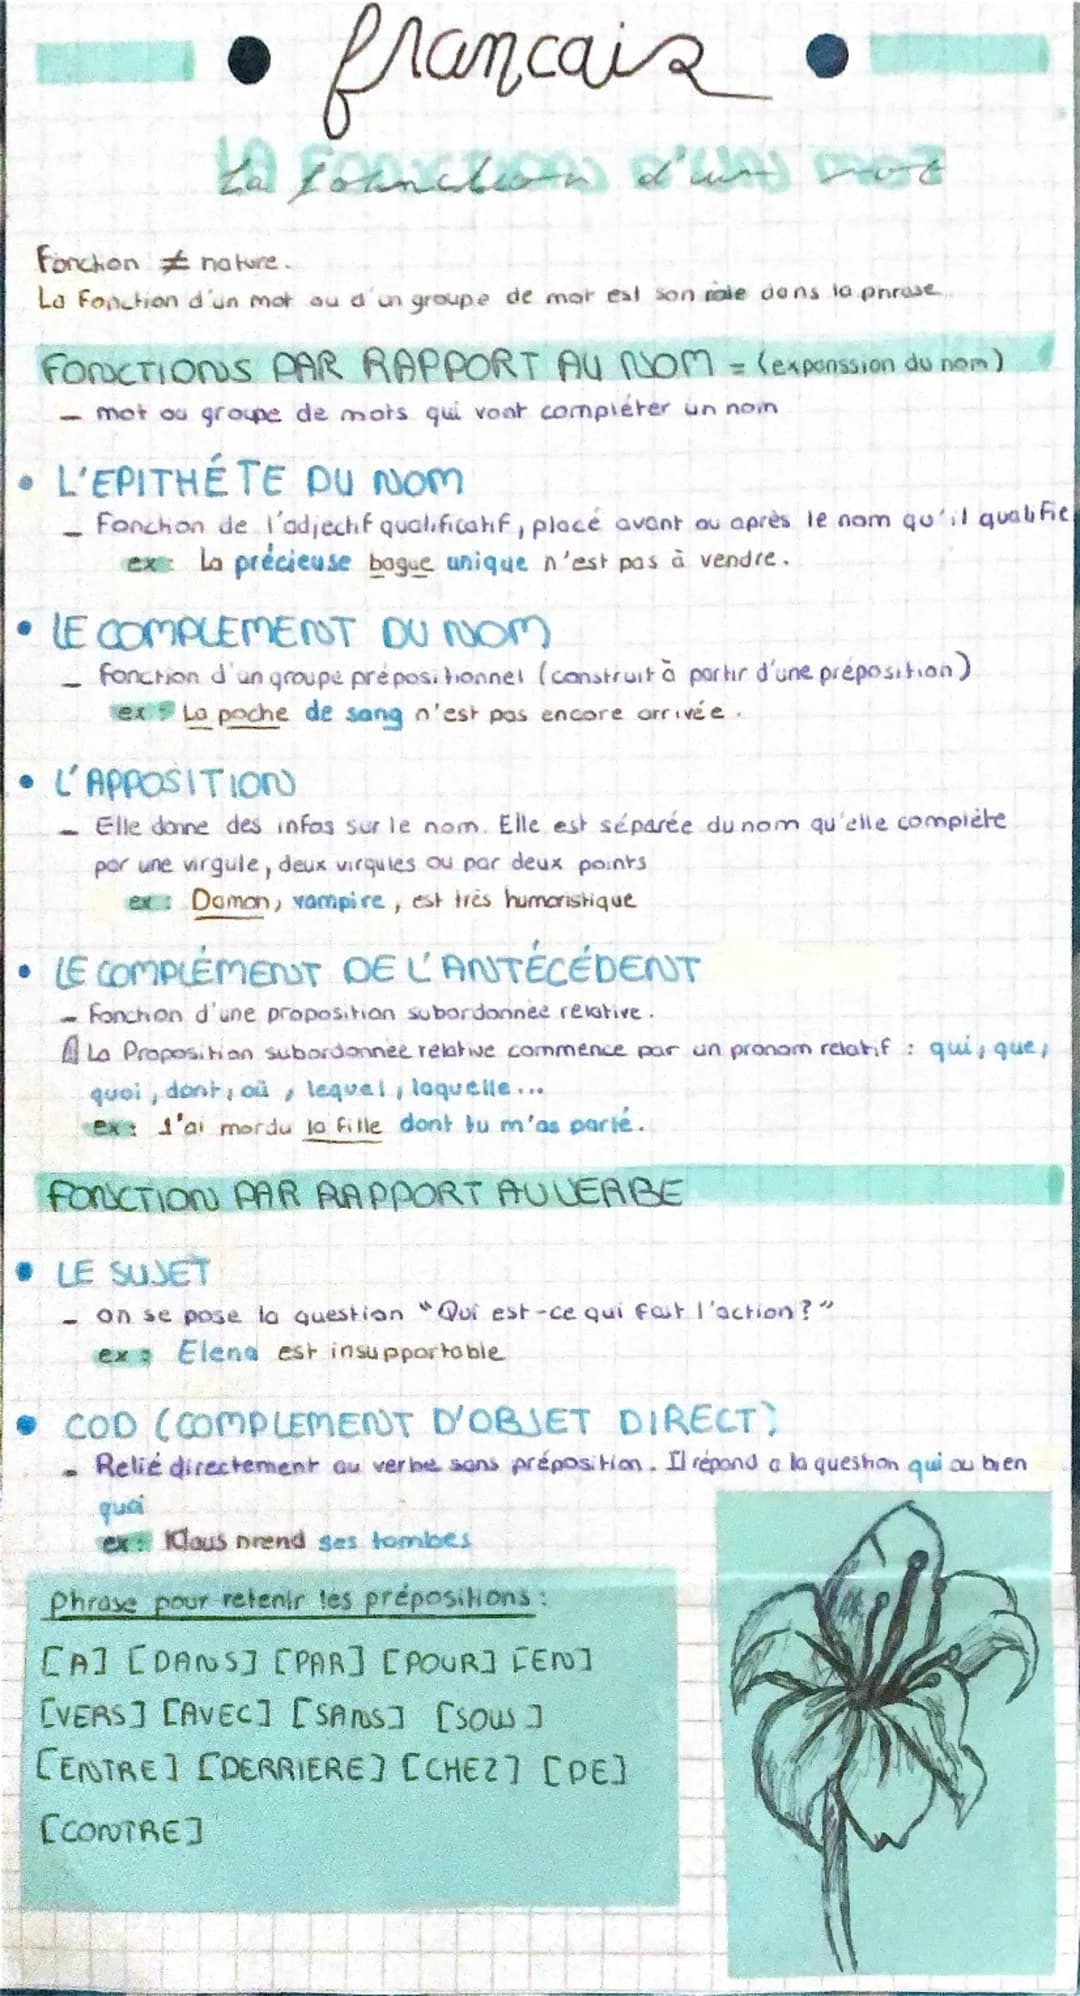 francais
La fonction d'un mot
Fonction ≠ nature.
La Fonction d'un mot ou d'un groupe de mot est son role dans la phrase.
FONCTIONS PAR RAPPORT AU NOM = (expanssion du nom)
– mot ou groupe de mots qui vont compléter un nom
• L'EPITHÉTE DU NOM
– Fonction de l'adjectif qualificatif, placé avant ou après le nom qu'il qualifie
ex: La précieuse bague unique n'est pas à vendre.
• LE COMPLEMENT DU NOM
– Fonction d'un groupe prépositionnel (construit à partir d'une préposition)
ex: La poche de sang n'est pas encore arrivée.
• L'APPOSITION
– Elle donne des infos sur le nom. Elle est séparée du nom qu'elle complète
par une virgule, deux virgules ou par deux points
ex: Damon, vampire, est très humoristique
• LE COMPLÉMENT DE L'ANTÉCÉDENT
– Fonction d'une proposition subordonnée relative.
La Proposition subordonnée relative commence par un pronom relatif : qui, que,
quoi, dont, où, lequel, laquelle...
ex: J'ai mordu la fille dont tu m'as parlé.
FONCTION PAR RAPPORT AU VERBE
• LE SUJET
– on se pose la question "Qui est-ce qui fait l'action?"
ex: Elena est insupportable
• COD (COMPLEMENT D'OBJET DIRECT)
– Relié directement au verbe sans préposition. Il répond a la question qui ou bien
quoi
ex: Klaus prend ses tombes
Phrase pour retenir les prépositions:
[A] [DANS] [PAR] [POUR] [EN]
[VERS] [AVEC] [SANS] [SOUS]
[ENTRE] [DERRIERE] [CHEZ] [DE]
[CONTRE]